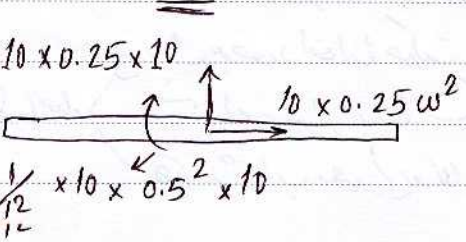 10 x 0.25 x 10
10 x 0.25 ω²
1/12 x 10 x 0.5² x 10